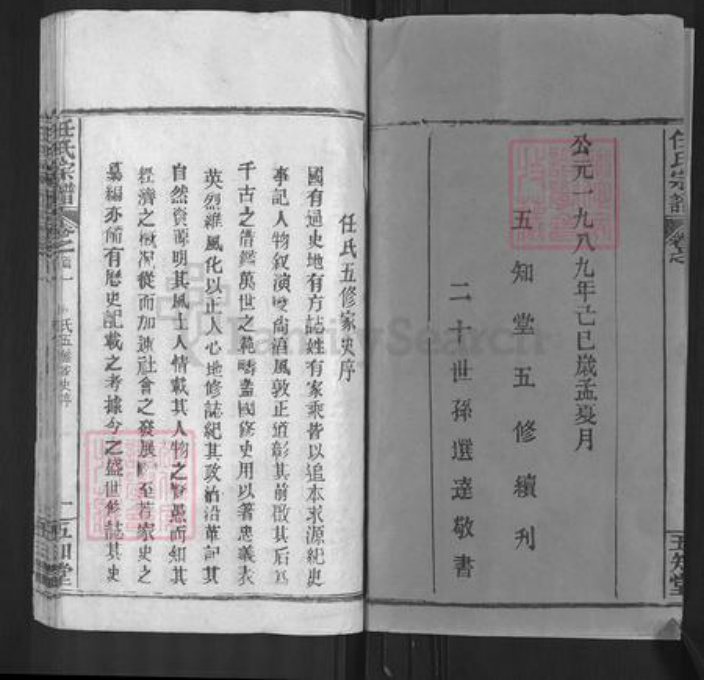 任氏宗譜
卷之
五知堂
公元一九八九年己巳歲孟夏月
五知堂五修續刊
二十世孫選達敬書
任氏五修家史序
國有通史地有方誌姓有家乘皆以追本求源紀史
事記人物叙演變尚酒風敦正道彰其前啟其后為
千古之借鑑萬世之範疇蓋國修史用以著忠義表
英烈維風化以正人心地修誌紀其政治沿革記其
自然資源明其風土人情載其人物之賢愚而細其
經濟之概況從而加速社會之發展 至若家史之
纂編亦備有歷史記載之考據今之盛世修誌其史
任氏宗譜
卷之首一
氏五修家史序
一
五知堂
FamilySearch